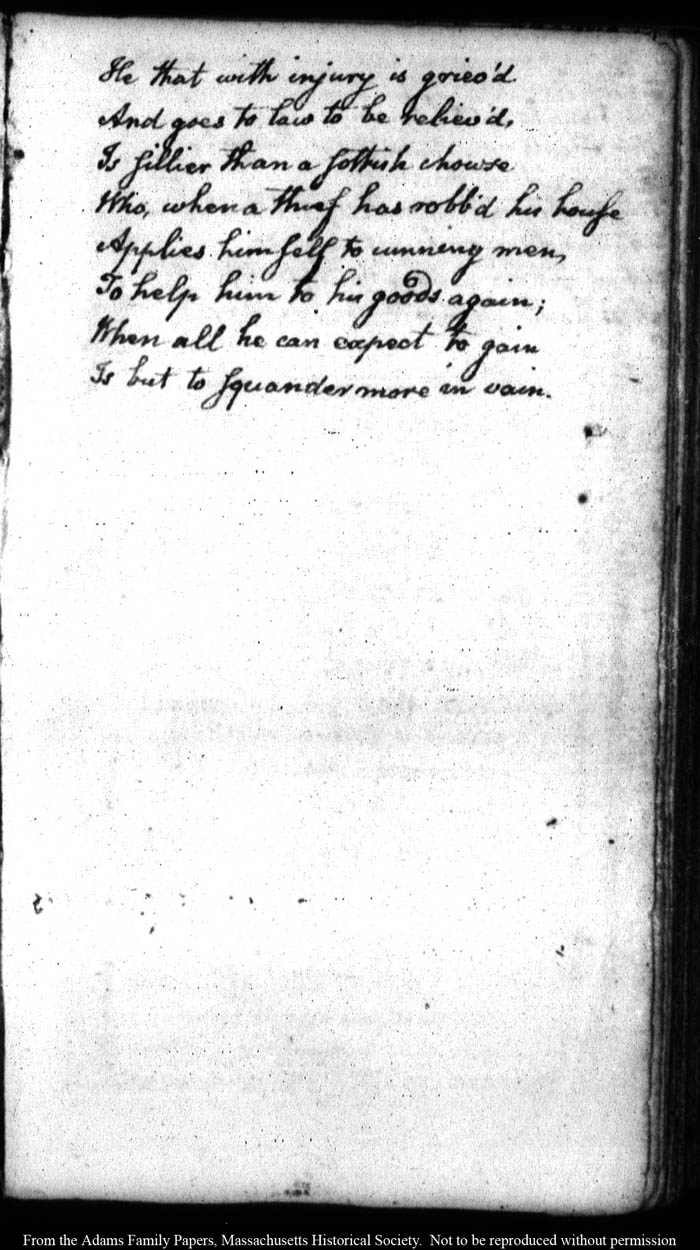 He that with injury is griev'd
And goes to law to be reliev'd,
Is sillier than a sottish chowse
Who, when a thief has robb'd his house
Applies himself to cunning men,
To help him to his goods again;
When all he can expect to gain
Is but to squander more in vain.
From the Adams Family Papers, Massachusetts Historical Society. Not to be reproduced without permission